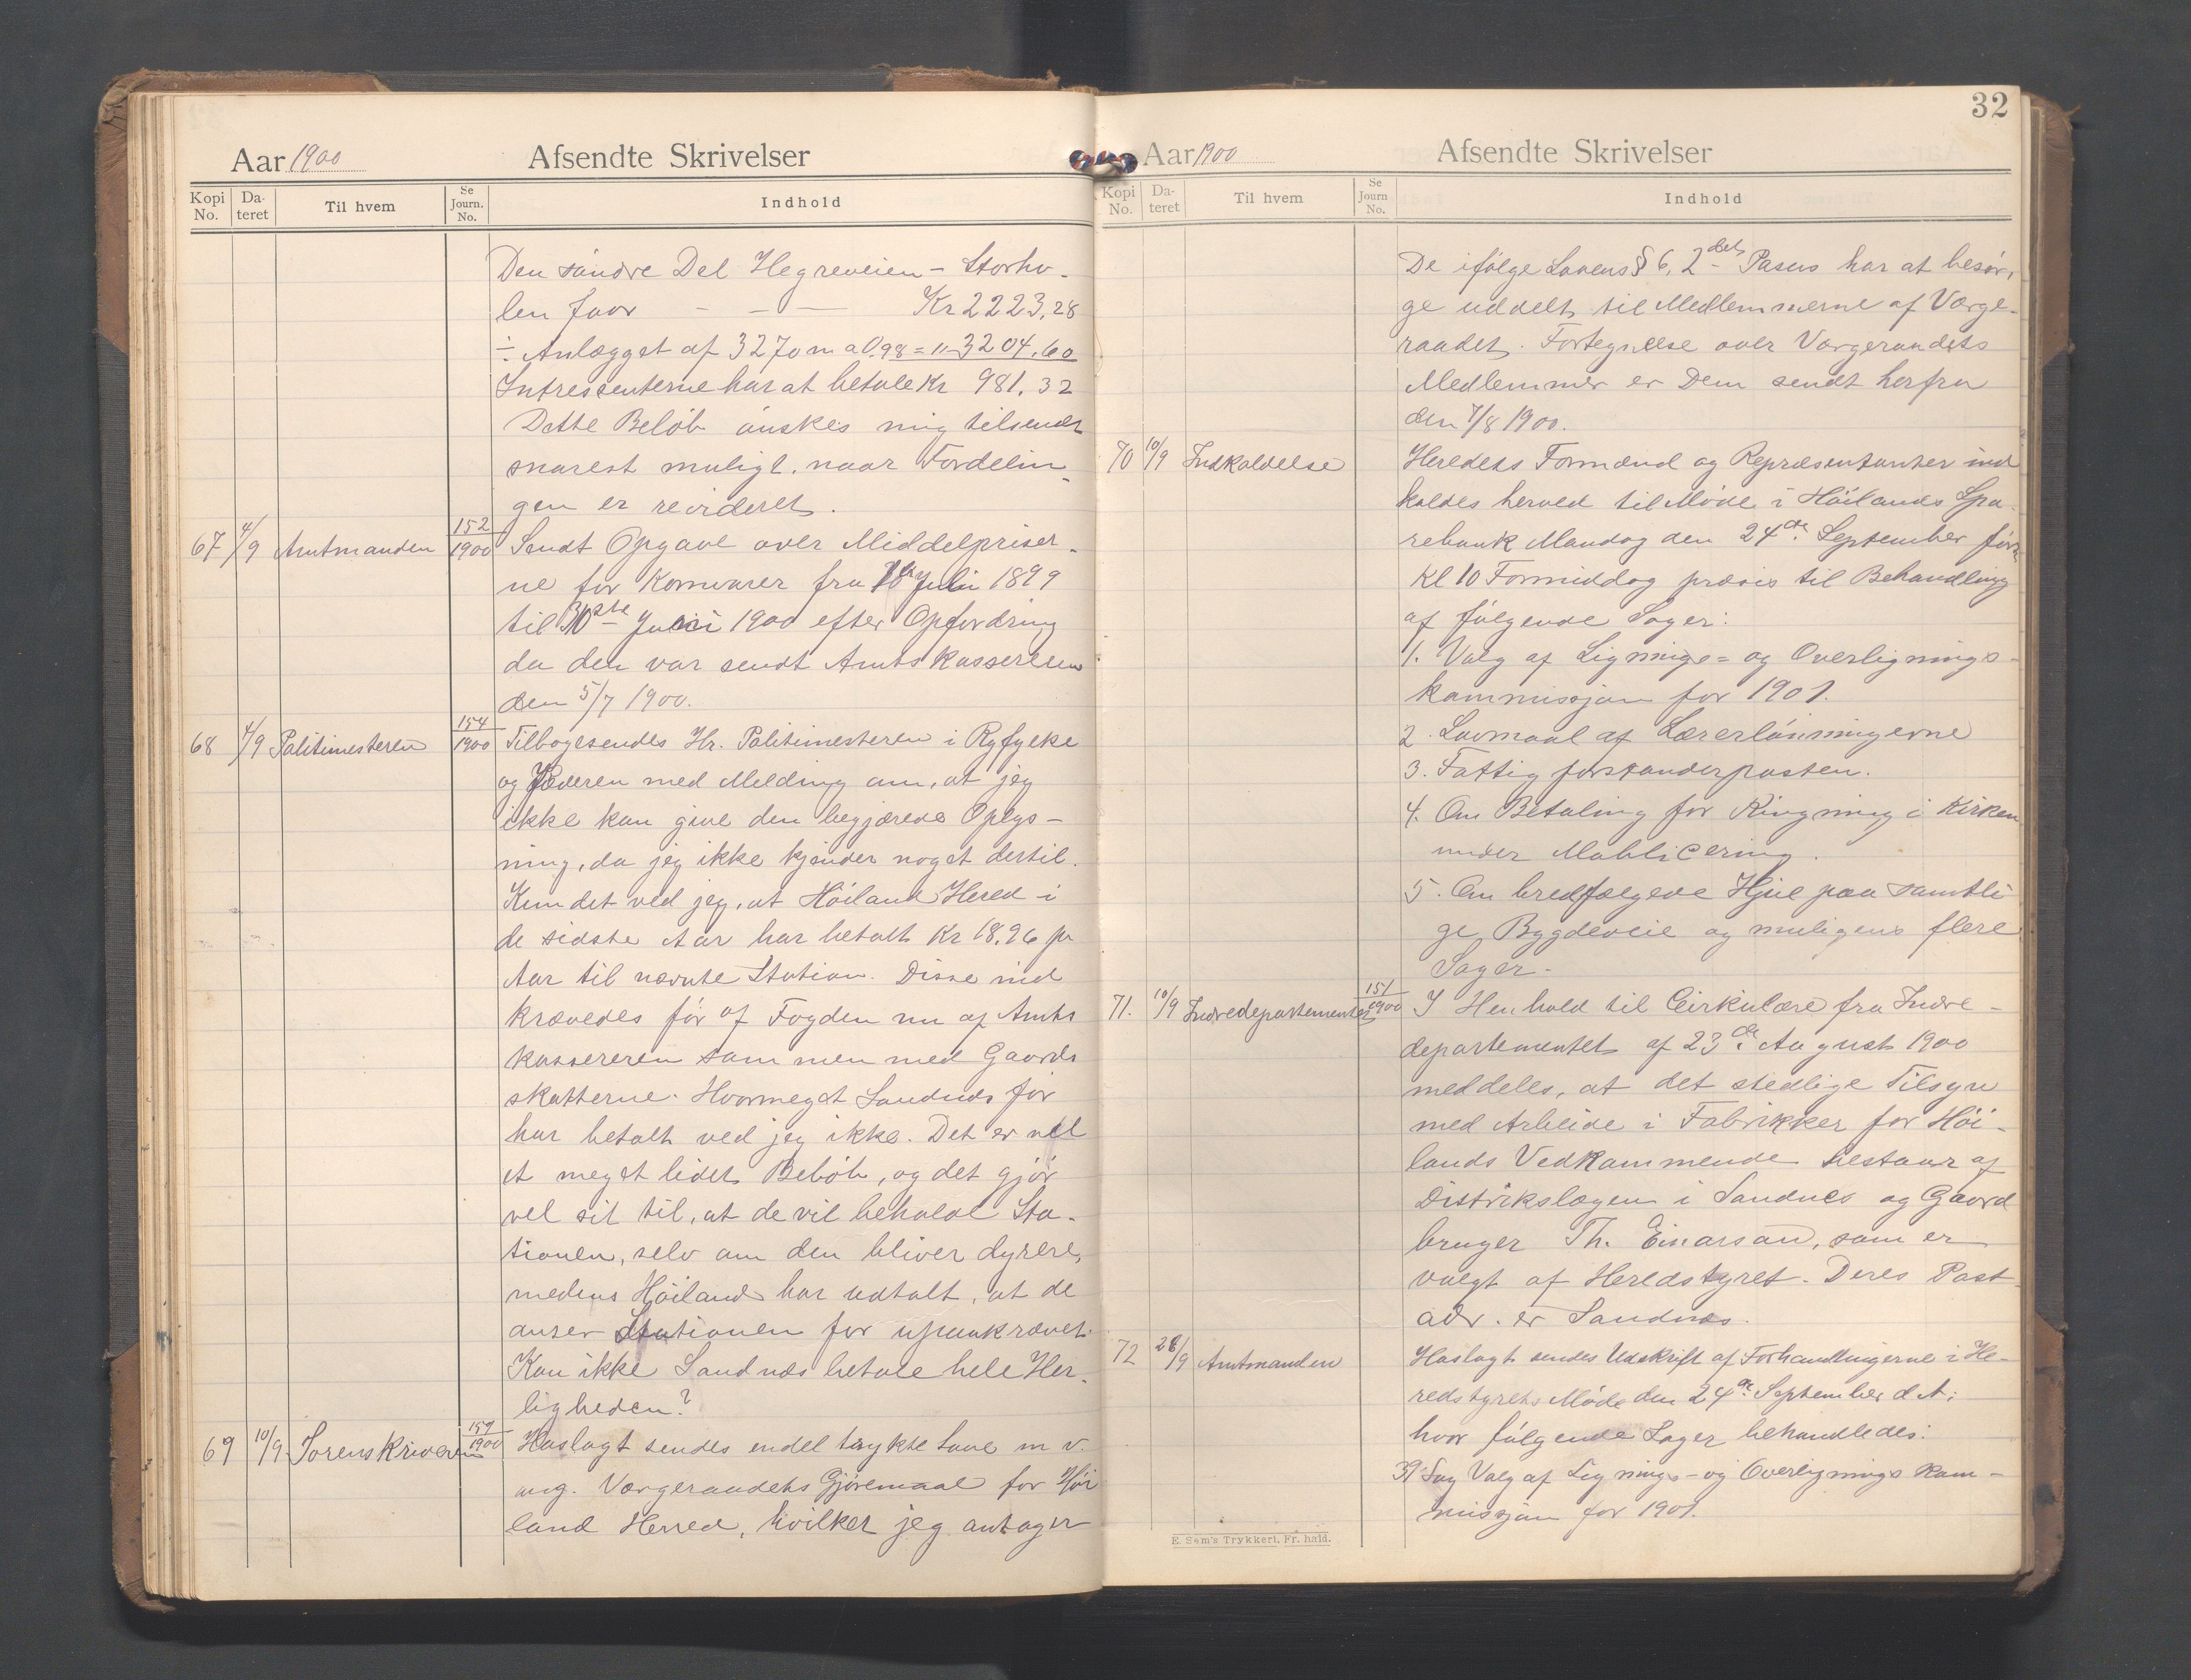 Aar 1900 Afsendte Skrivelser
Kopi No. Dateret Til hvem Se Journ. No. Indhold
Den søndre Del Hegreveien - Storho-
len faar - - - Kr 2223,28
÷ Anlægget af 3270 m a 0.98 = "- 3204.60
Intressenterne har at betale Kr 981.32
Dette Beløb ønskes mig tilsendt
snarest muligt, naar Fordelin-
gen er revideret.
67 4/9 Amtmanden 152/1900 Sendt Opgave over Middelpriser-
ne for Kornvarer fra 1ste Juli 1899
til 30ste Juni 1900 efter Opfordring
da den var sendt Amtskassereren
den 5/7 1900.
68 4/9 Politimesteren 154/1900 Tilbagesendes Hr. Politimesteren i Ryfylke
og Jæderen med Melding om, at jeg
ikke kan give den begjærede Oplys-
ning, da jeg ikke kjender noget dertil.
Kun det ved jeg, at Høiland Hered i
de sidste Aar har betalt Kr 18,96 pr
Aar til nævnte Station. Disse ind
krævedes før af Fogden nu af Amts
kassereren sammen med Gaards
skatterne. Hvormeget Sandnæs før
har betalt ved jeg ikke. Det er vel
et meget lidet Beløb, og det gjør
vel sit til, at de vil beholde Sta-
tionen, selv om den bliver dyrere,
medens Høiland har udtalt, at de
anser Stationen for upaakrævet.
Kan ikke Sandnæs betale hele Her-
ligheden?
69 10/9 Sorenskriveren 159/1900 Hoslagt sendes endel trykte Love m v.
ang. Værgeraadets Gjøremaal for Høi
land Herred, hvilket jeg antager
32
Aar 1900 Afsendte Skrivelser
Kopi No. Dateret Til hvem Se Journ No. Indhold
De ifølge Lovens § 6, 2det Pasus har at besør-
ge uddelt til Medlemmerne af Værge-
raadet. Fortegnelse over Værgeraadets
Medlemmer er Dem sendt herfra
den 7/8 1900.
70 10/9 Indkaldelse Heredets Formænd og Repræsentanter ind
kaldes herved til Møde i Høilands Spa-
rebank Mandag den 24de September førs
Kl 10 Formiddag præcis til Behandling
af følgende Sager:
1. Valg af Lignings= og Overlignings-
kommissjon for 1901.
2. Lovmaal af Lærerlønningerne
3. Fattigforstanderposten.
4. Om Betaling for Ringning i Kirken
under Mobilicering.
5. Om bredfælgede Hjul paa samtli
ge Bygdeveie og muligens flere
Sager.
71. 10/9 Indredepartementet 151/1900 I Henhold til Cirkulære fra Indre-
departementet af 23de August 1900
meddeles, at det stedlige Tilsyn
med Arbeide i Fabrikker for Høi-
lands Vedkommende bestaar af
Distrikslægen i Sandnes og Gaard
bruger Th. Einarson, som er
valgt af Heredstyret. Deres Post
adr. er Sandnæs.
72 28/9 Amtmanden Hoslagt sendes Udskrift af Forhandlingerne i He-
redstyrets Møde den 24de September d. A.
hvor følgende Sager behandledes:
39 Sag Valg af Lignings- og Overlignings kom-
missjon for 1901.
E. Sem's Trykkeri, Fr. hald.